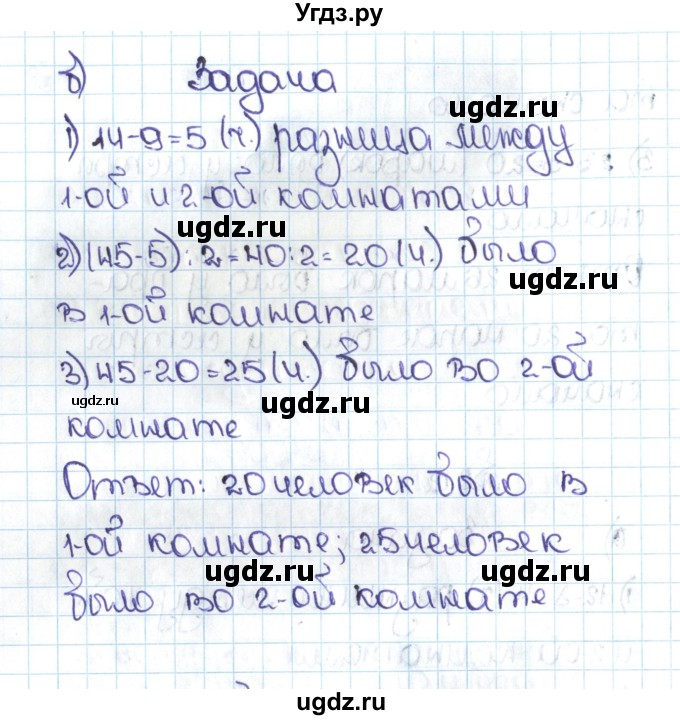 Угдз.ру
б) Задача
ugdz.ru
1) 14-9=5 (ч.) разница между
ugdz.ru
1-ой и 2-ой комнатами
ugdz.ru
2) (45-5):2=40:2=20 (ч.) было
ugdz.ru
ugdz.ru
в 1-ой комнате
ugdz.ru
3) 45-20=25 (ч.) было во 2-ой
ugdz.ru
ugdz.ru
комнате
Ответ: 20 человек было в
ugdz.ru
1-ой комнате; 25 человек
ugdz.ru
ugdz.ru
было во 2-ой комнате
ugdz.ru